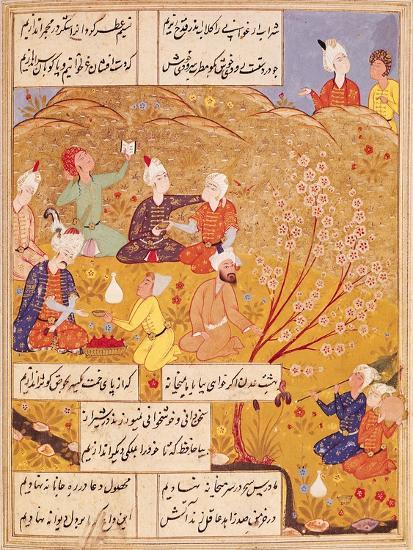 شراب ارغوانی را گلاب اندر قدح ریزیم نسیم عطر گردان را شکر در مجمر اندازیم
چو در دستست رودی خوش بگو مطرب سرودی خوش که دست افشان غزل خوانیم و پاکوبان سر اندازیم
بهشت عدن اگر خواهی بیا با ما به میخانه که از پای خمت یکسر بحوض کوثر اندازیم
سخندانی و خوشخوانی نمیورزند در شیراز
بیا حافظ که تا خود را بملکی دیگر اندازیم
ما درس سحر در سر میخانه نهادیم محصول دعا در ره جانانه نهادیم
در خرمن صد زاهد عاقل زند آتش این داغ که ما بر دل دیوانه نهادیم